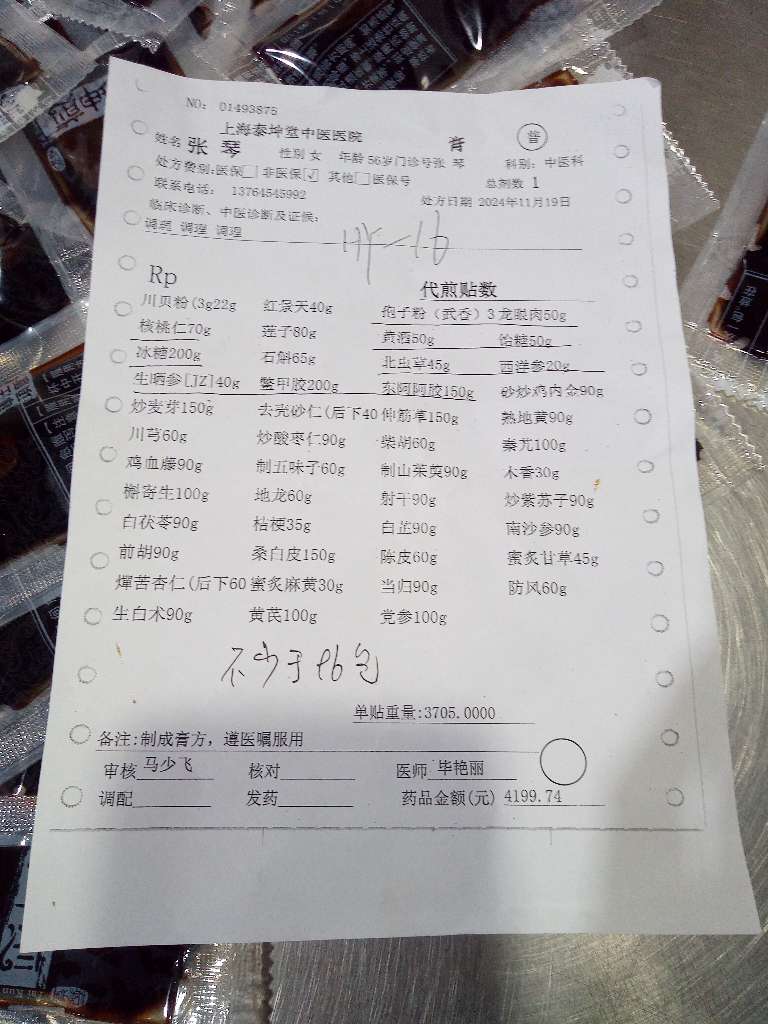 NO: 01493875
上海泰坤堂中医医院 膏 普
姓名 张 琴 性别 女 年龄 56岁 门诊号张 琴 科别: 中医科
处方费别:医保 非医保√ 其他 医保号 总剂数 1
联系电话: 13764545992 处方日期 2024年11月19日
临床诊断、中医诊断及证候:
调理 调理 调理
Rp 代煎贴数
川贝粉(3g22g 红景天40g 孢子粉(武香)3 龙眼肉50g
核桃仁70g 莲子80g 黄酒50g 饴糖50g
冰糖200g 石斛65g 北虫草45g 西洋参20g
生晒参[JZ]40g 鳖甲胶200g 东阿阿胶150g 砂炒鸡内金90g
炒麦芽150g 去壳砂仁(后下40 伸筋草150g 熟地黄90g
川芎60g 炒酸枣仁90g 柴胡60g 秦艽100g
鸡血藤90g 制五味子60g 制山茱萸90g 木香30g
槲寄生100g 地龙60g 射干90g 炒紫苏子90g
白茯苓90g 桔梗35g 白芷90g 南沙参90g
前胡90g 桑白皮150g 陈皮60g 蜜炙甘草45g
燀苦杏仁(后下60 蜜炙麻黄30g 当归90g 防风60g
生白术90g 黄芪100g 党参100g
不少于96包
单贴重量:3705.0000
备注:制成膏方，遵医嘱服用
审核 马少飞 核对 医师 毕艳丽
调配 发药 药品金额(元) 4199.74